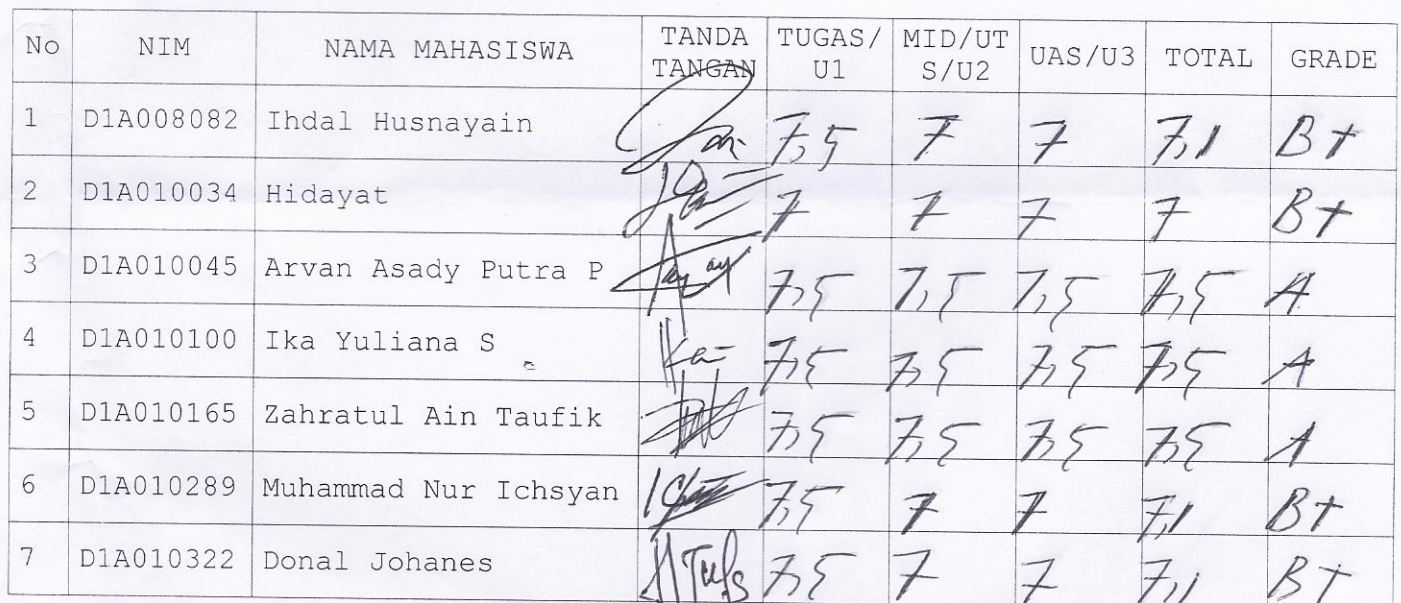 No NIM NAMA MAHASISWA TANDA TANGAN TUGAS/U1 MID/UTS/U2 UAS/U3 TOTAL GRADE
1 D1A008082 Ihdal Husnayain 7,5 7 7 7,1 B+
2 D1A010034 Hidayat 7 7 7 7 B+
3 D1A010045 Arvan Asady Putra P 7,5 7,5 7,5 7,5 A
4 D1A010100 Ika Yuliana S 7,5 7,5 7,5 7,5 A
5 D1A010165 Zahratul Ain Taufik 7,5 7,5 7,5 7,5 A
6 D1A010289 Muhammad Nur Ichsyan 7,5 7 7 7,1 B+
7 D1A010322 Donal Johanes 7,5 7 7 7,1 B+